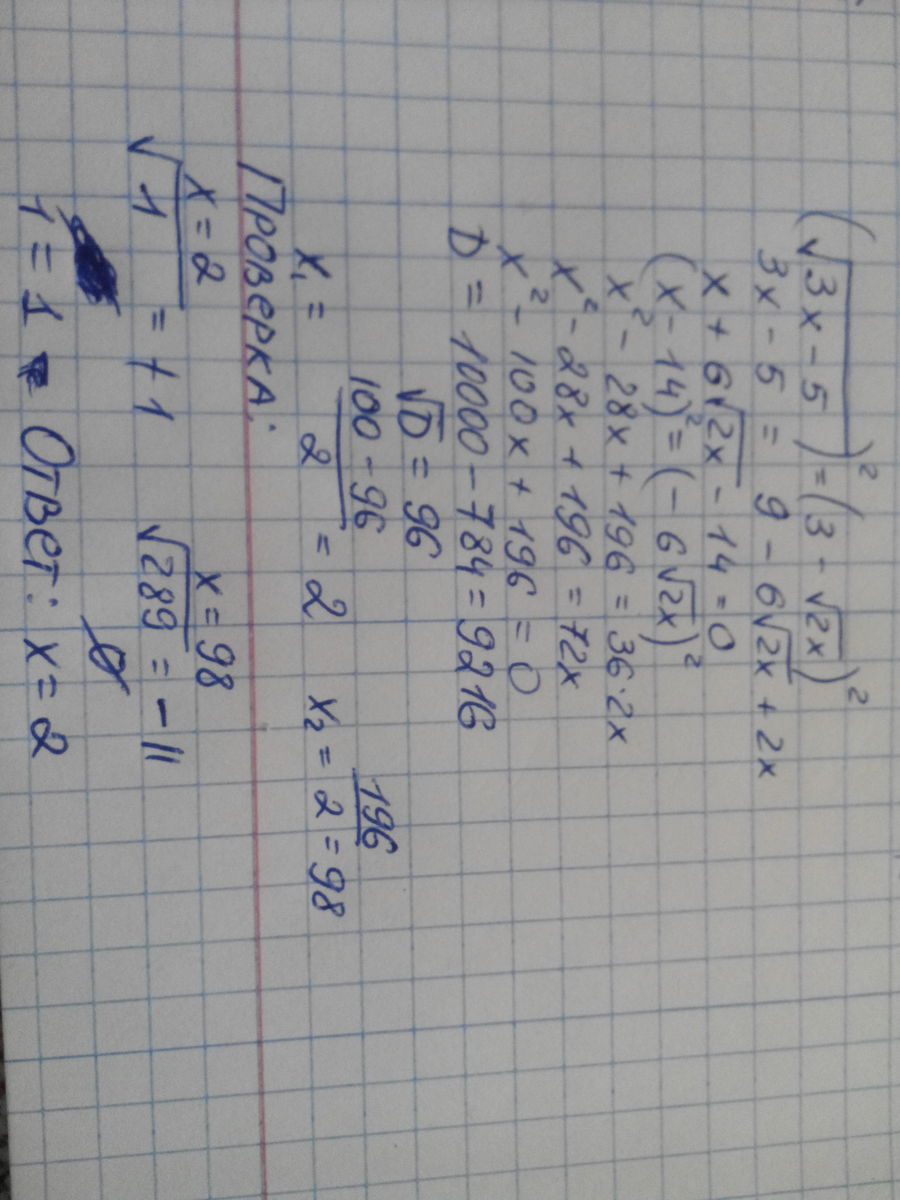 (√3x - 5)² = (3 - √2x)²
3x - 5 = 9 - 6√2x + 2x
x + 6√2x - 14 = 0
(x - 14)² = (- 6√2x)²
x² - 28x + 196 = 36·2x
x² - 28x + 196 = 72x
x² - 100x + 196 = 0
D = 10000 - 784 = 9216
√D = 96
x₁ = (100 - 96)/2 = 2 x₂ = 196/2 = 98
Проверка:
x = 2 x = 98
√1 = +1 √289 = - 11
∅
1 = 1 Ответ: x = 2